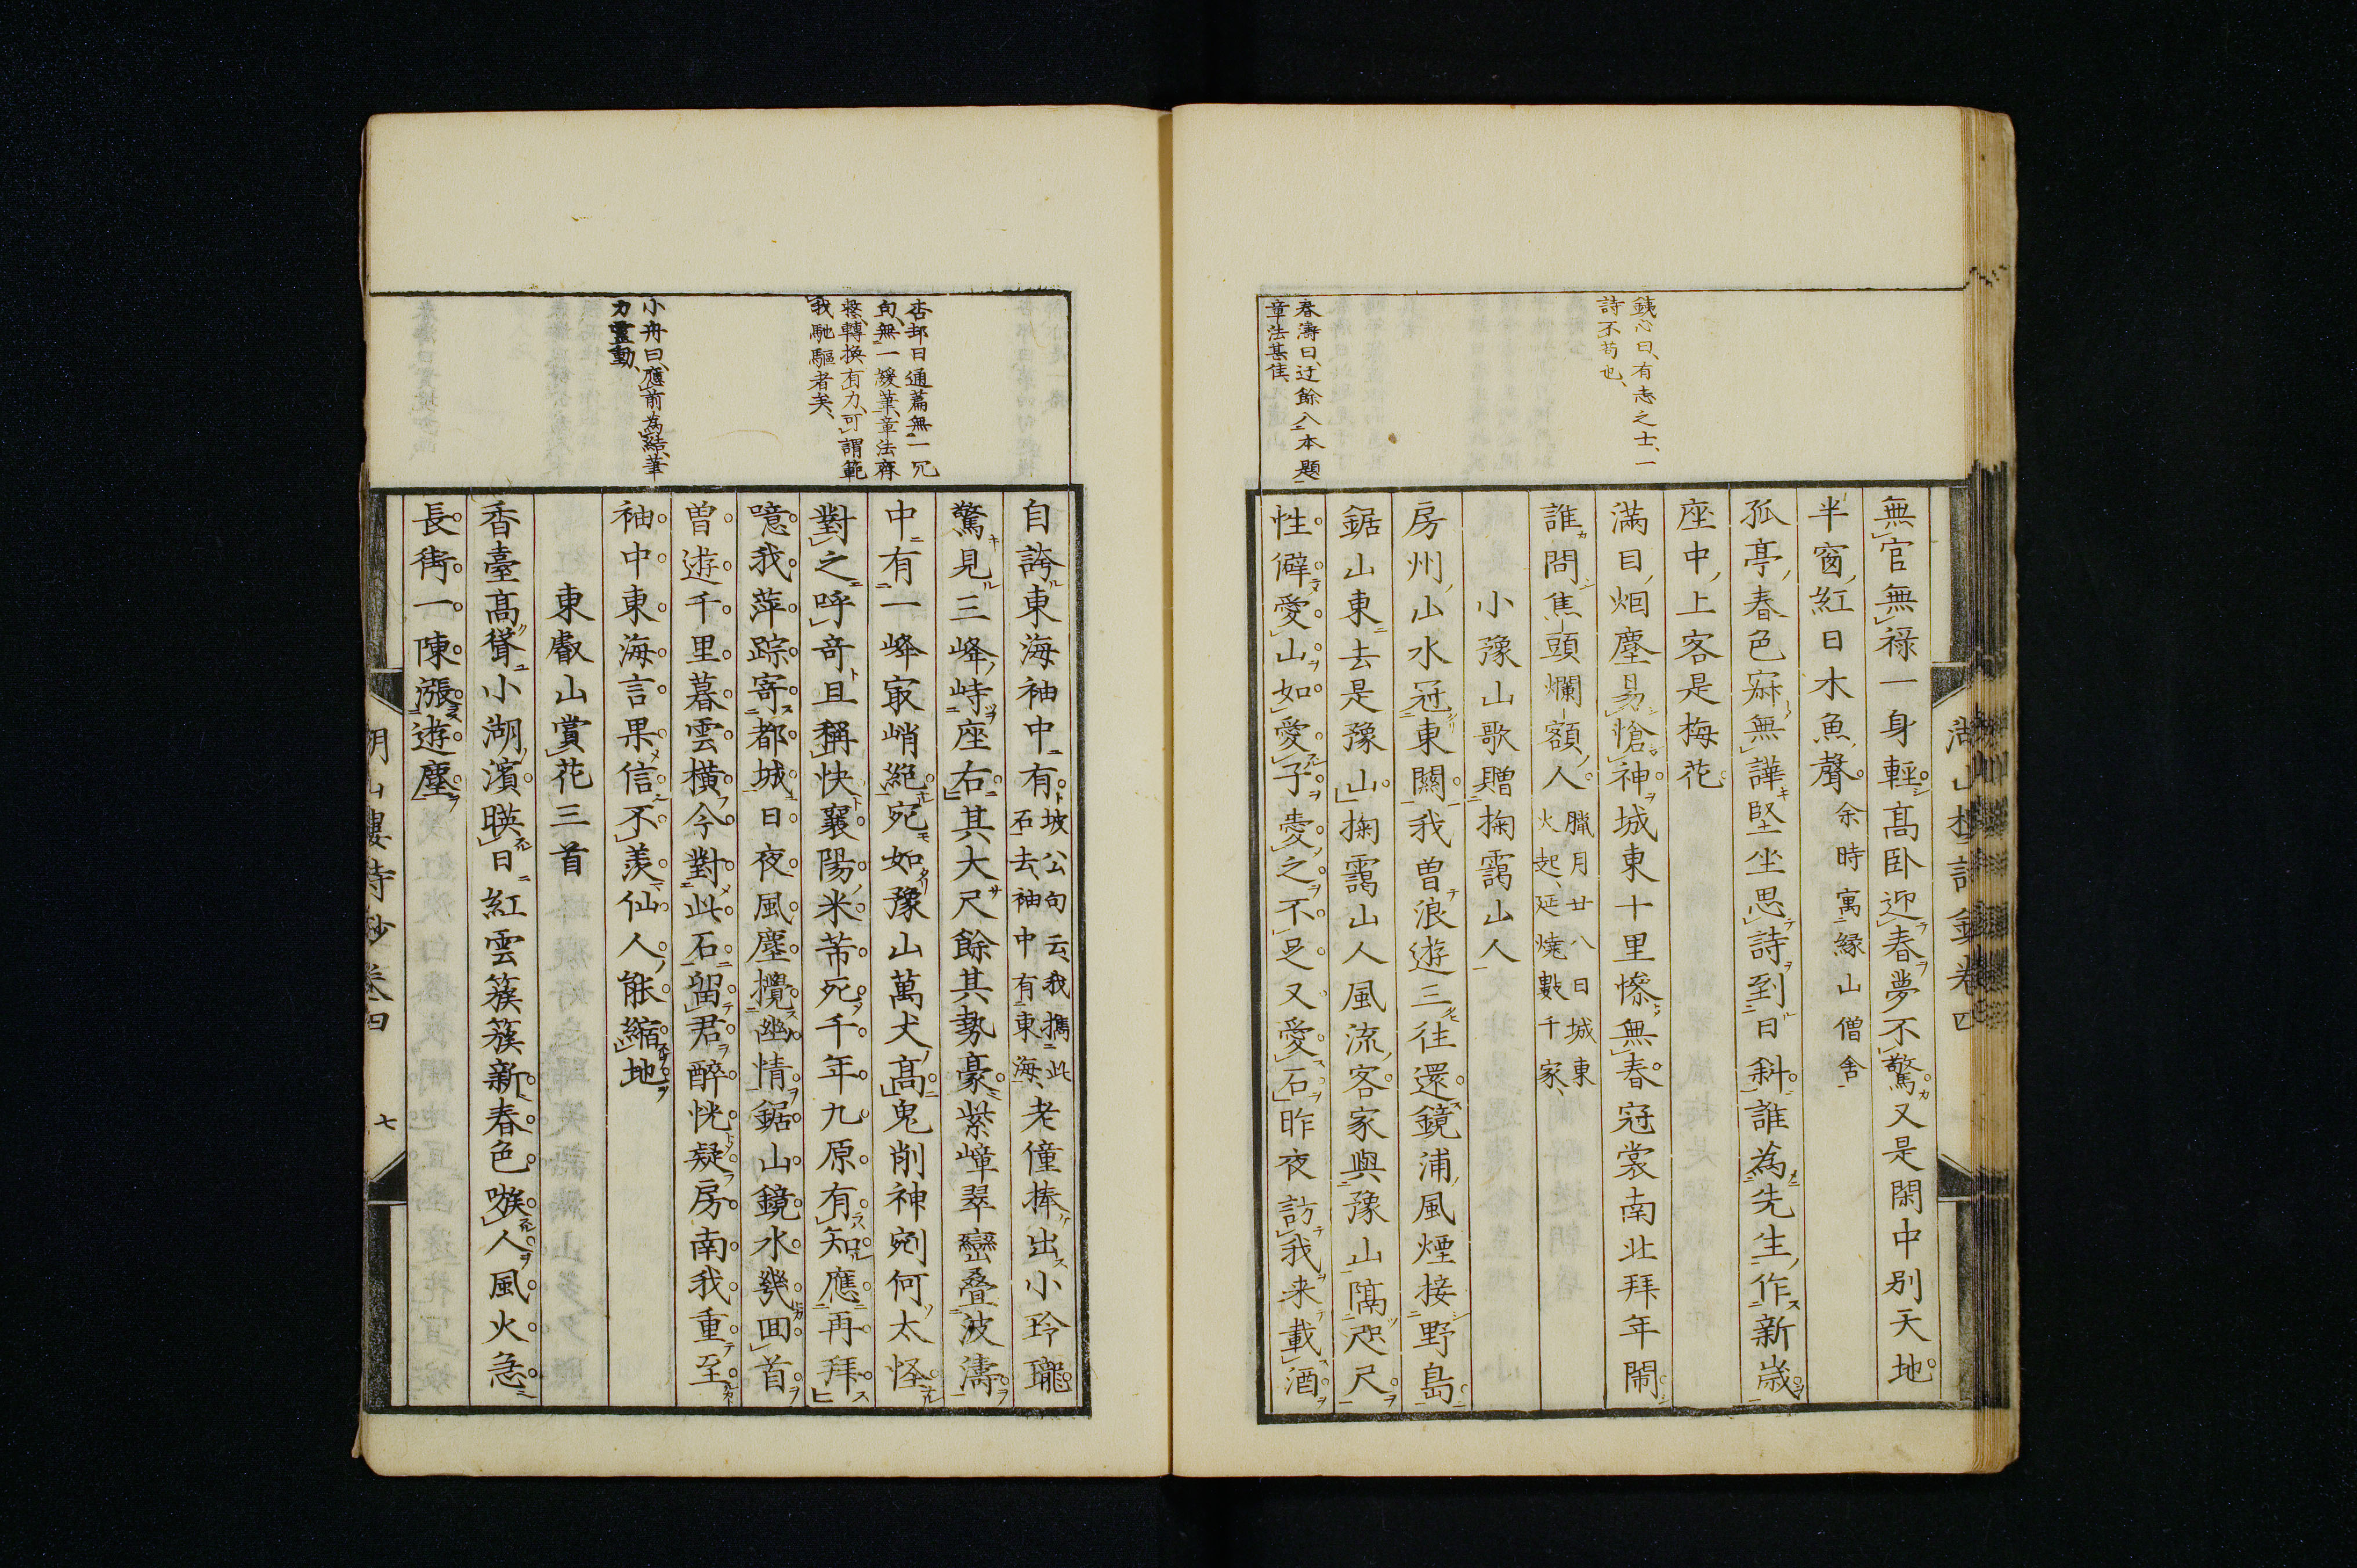 銕心曰、有志之士、一
詩不苟也、
春濤曰、迂餘入本題
章法甚佳、
無官無祿一身輕高臥迎春夢不驚又是閑中別天地
半窗紅日木魚聲余時寓緣山僧舍
孤亭春色寂無譁堅坐思詩到日斜誰為先生作新歲
座中上客是梅花
滿目烟塵易愴神城東十里慘無春冠裳南北拜年鬧
誰問焦頭爛額人臘月廿八日城東
火起、延燒數千家、
小豫山歌贈掬靄山人
房州山水冠東關我曾浪遊三往還鏡浦風煙接野島
鋸山東去是豫山掬靄山人風流客家與豫山隔咫尺
性僻愛山如愛子愛之不足又愛石昨夜訪我来載酒
湖山樓詩鈔卷四
杏邨曰、通篇無一冗
句、無一緩筆、章法齊
整、轉換有力、可謂範
我馳驅者矣、
小舟曰、應前為結、筆
力靈動、
自誇東海袖中有坡公句云、我攜此
石去、袖中有東海、老僮捧出小玲瓏
驚見三峰峙座右其大尺餘其勢豪紫嶂翠巒疊波濤
中有一峰最峭絕宛如豫山萬犬高鬼削神剜何太怪
對之呼奇且稱快襄陽米芾死千年九原有知應再拜
噫我萍踪寄都城日夜風塵攪幽情鋸山鏡水幾回首
曽遊千里暮雲橫今對此石留君醉恍疑房南我重至
袖中東海言果信不羨仙人能縮地
東叡山賞花三首
香臺高聳小湖濱暎日紅雲簇簇新春色嗾人風火急
長街一陳漲遊塵
湖山樓詩鈔卷四
七